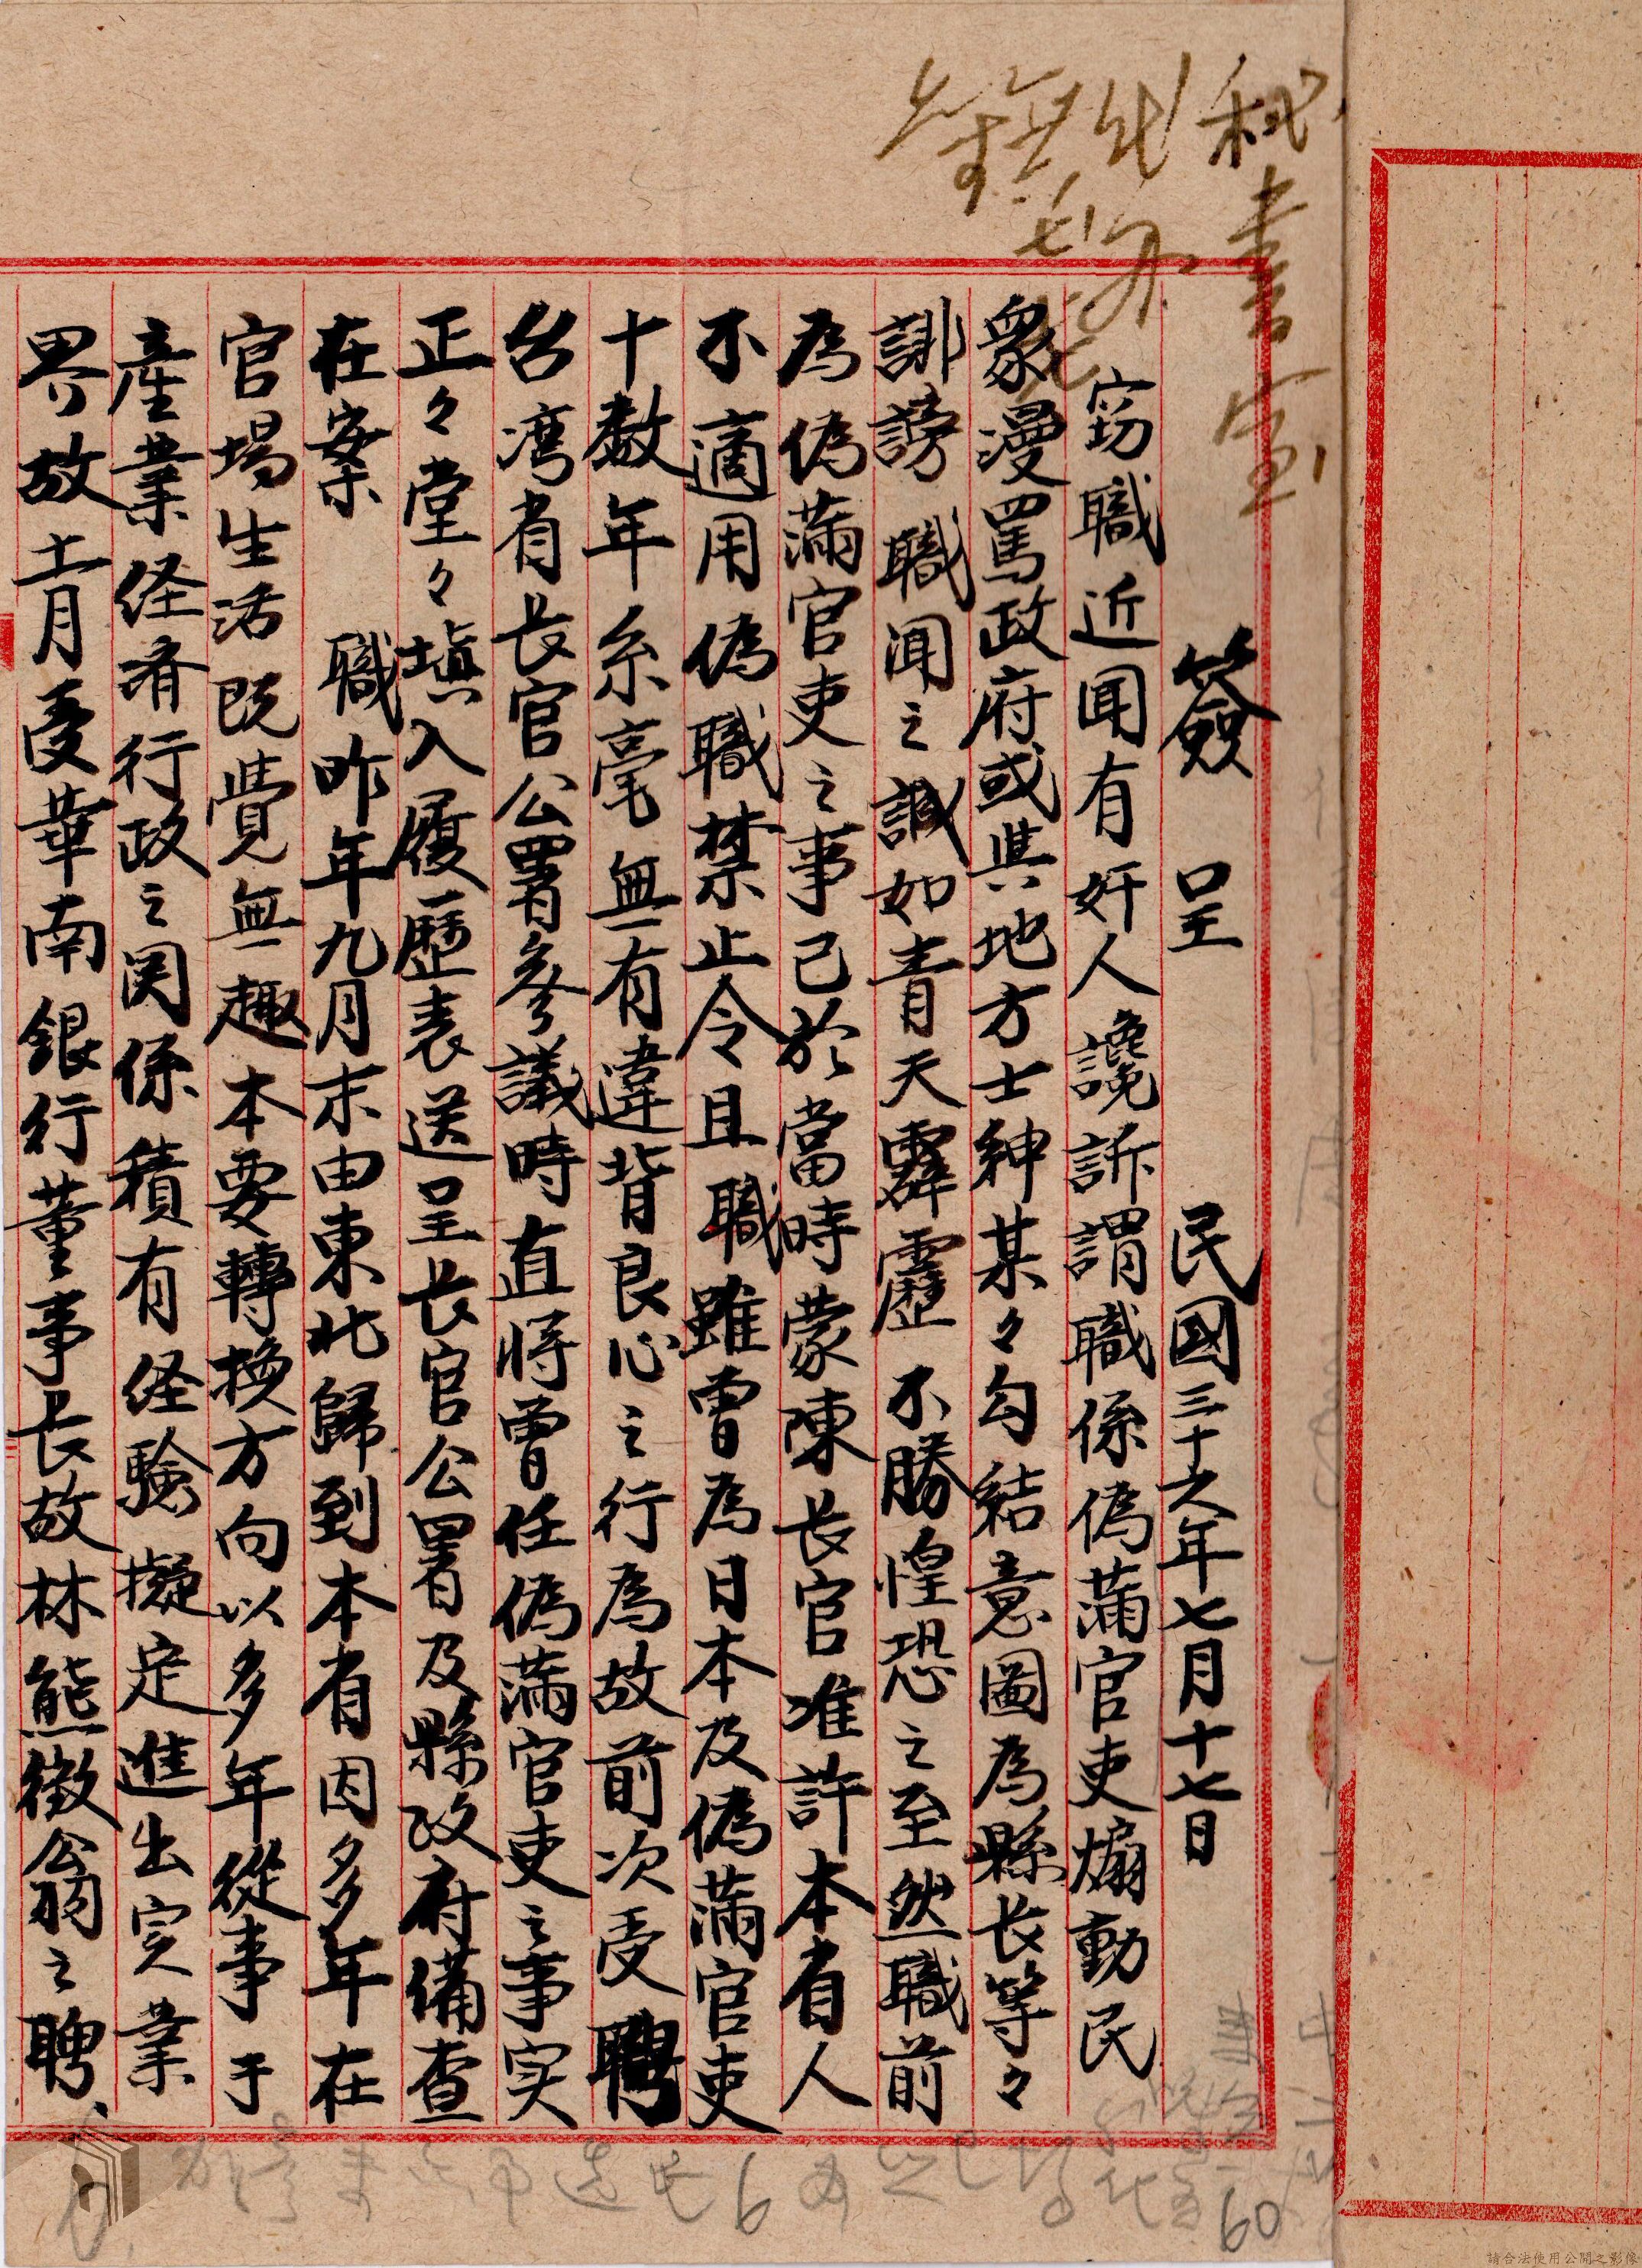 秘書室
簽呈 民國三十六年七月十七日
竊職近聞有奸人讒訴謂職係偽滿官吏煽動民
衆漫罵政府或與地方士紳某々勾結意圖為縣長等々
誹謗 職聞之誠如青天霹靂不勝惶恐之至然職前
為偽滿官吏之事已於當時蒙陳長官准許本省人
不適用偽職禁止令且職雖曾為日本及偽滿官吏
十数年糸毫無有違背良心之行為故前次受聘
台湾省長官公署參議時直将曾任偽滿官吏之事实
正々堂々填入履歷表送呈長官公署及縣政府備查
在案 職昨年九月末由東北歸到本省因多年在
官場生活既覺無趣本要轉换方向以多年從事于
産業経済行政之関係積有経驗擬定進出实業
界故十一月受華南銀行董事長故林熊徵公翁之聘、
60
請合法使用公開之影像